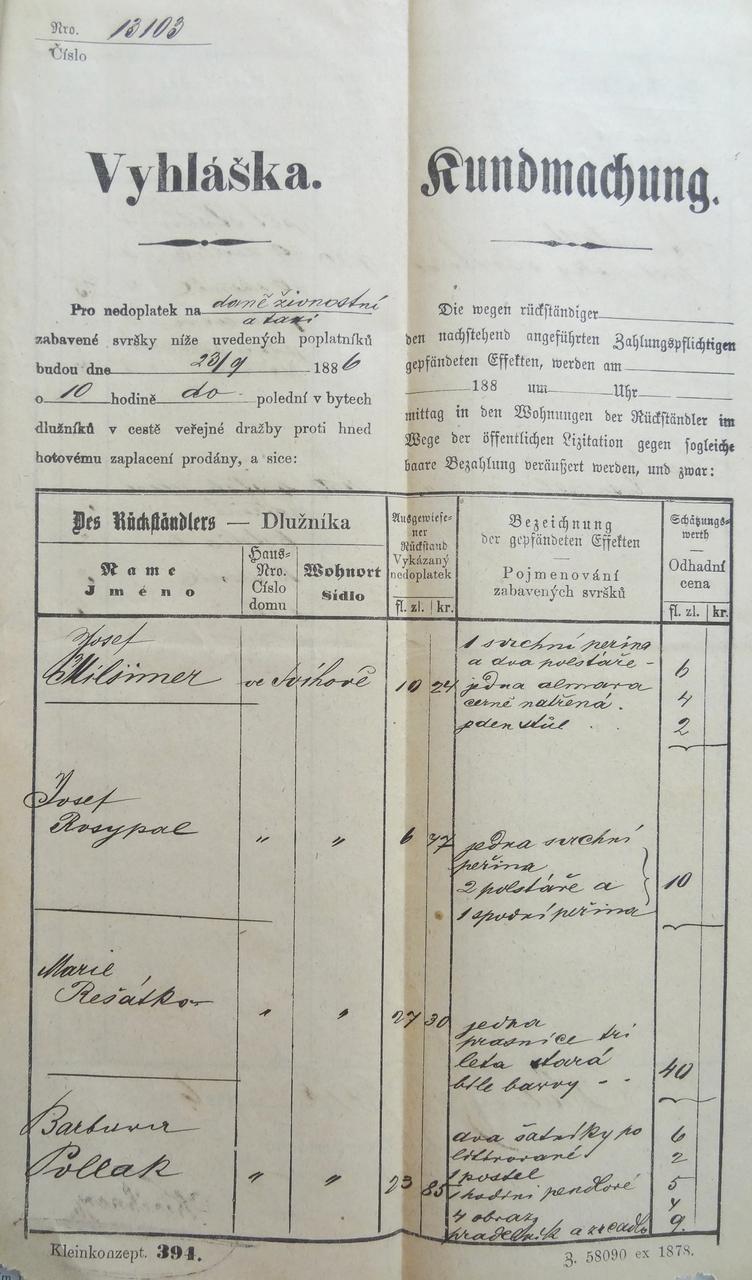 Nro. 13103
Číslo
Vyhláška.
Pro nedoplatek na daně živnostní
a taxi
zabavené svršky níže uvedených poplatníků
budou dne 23/9 1886
o 10 hodině do polední v bytech
dlužníků v cestě veřejné dražby proti hned
hotovému zaplacení prodány, a sice:
Kundmachung.
Die wegen rückständiger
den nachstehend angeführten Zahlungspflichtigen
gepfändeten Effekten, werden am
188 um Uhr
mittag in den Wohnungen der Rückständler im
Wege der öffentlichen Lizitation gegen sogleiche
baare Bezahlung veräußert werden, und zwar:
Des Rückständlers — Dlužníka
Name
Jméno
Haus-
Nro.
Číslo
domu
Wohnort
Sídlo
Ausgewiese-
ner
Rückstand
Vykázaný
nedoplatek
fl. zl. kr.
Bezeichnung
der gepfändeten Effekten
Pojmenování
zabavených svršků
Schätzungs-
werth
Odhadní
cena
fl. zl. kr.
Josef
ve Švihově 10 24
1 svrchní peřina
a dva polštáře - 6
jedna almara
černě natřená . 4
jden stůl . . 2
Josef
Rosypal " " 6 47
jedna svrchní
peřina
2 polštáře a 10
1 spodní peřina
Marie
Rešátko " " 27 30
jedna
prasnice tri
leta stará
bíle barvy - - 40
Pollak " " 23 85
dva šatníky po 6
littrované 2
1 postel
1 hodini pendlové 5
4 obraz 4
pradelník a zrcadlo 9
Kleinkonzept. 394.
Z. 58090 ex 1878.